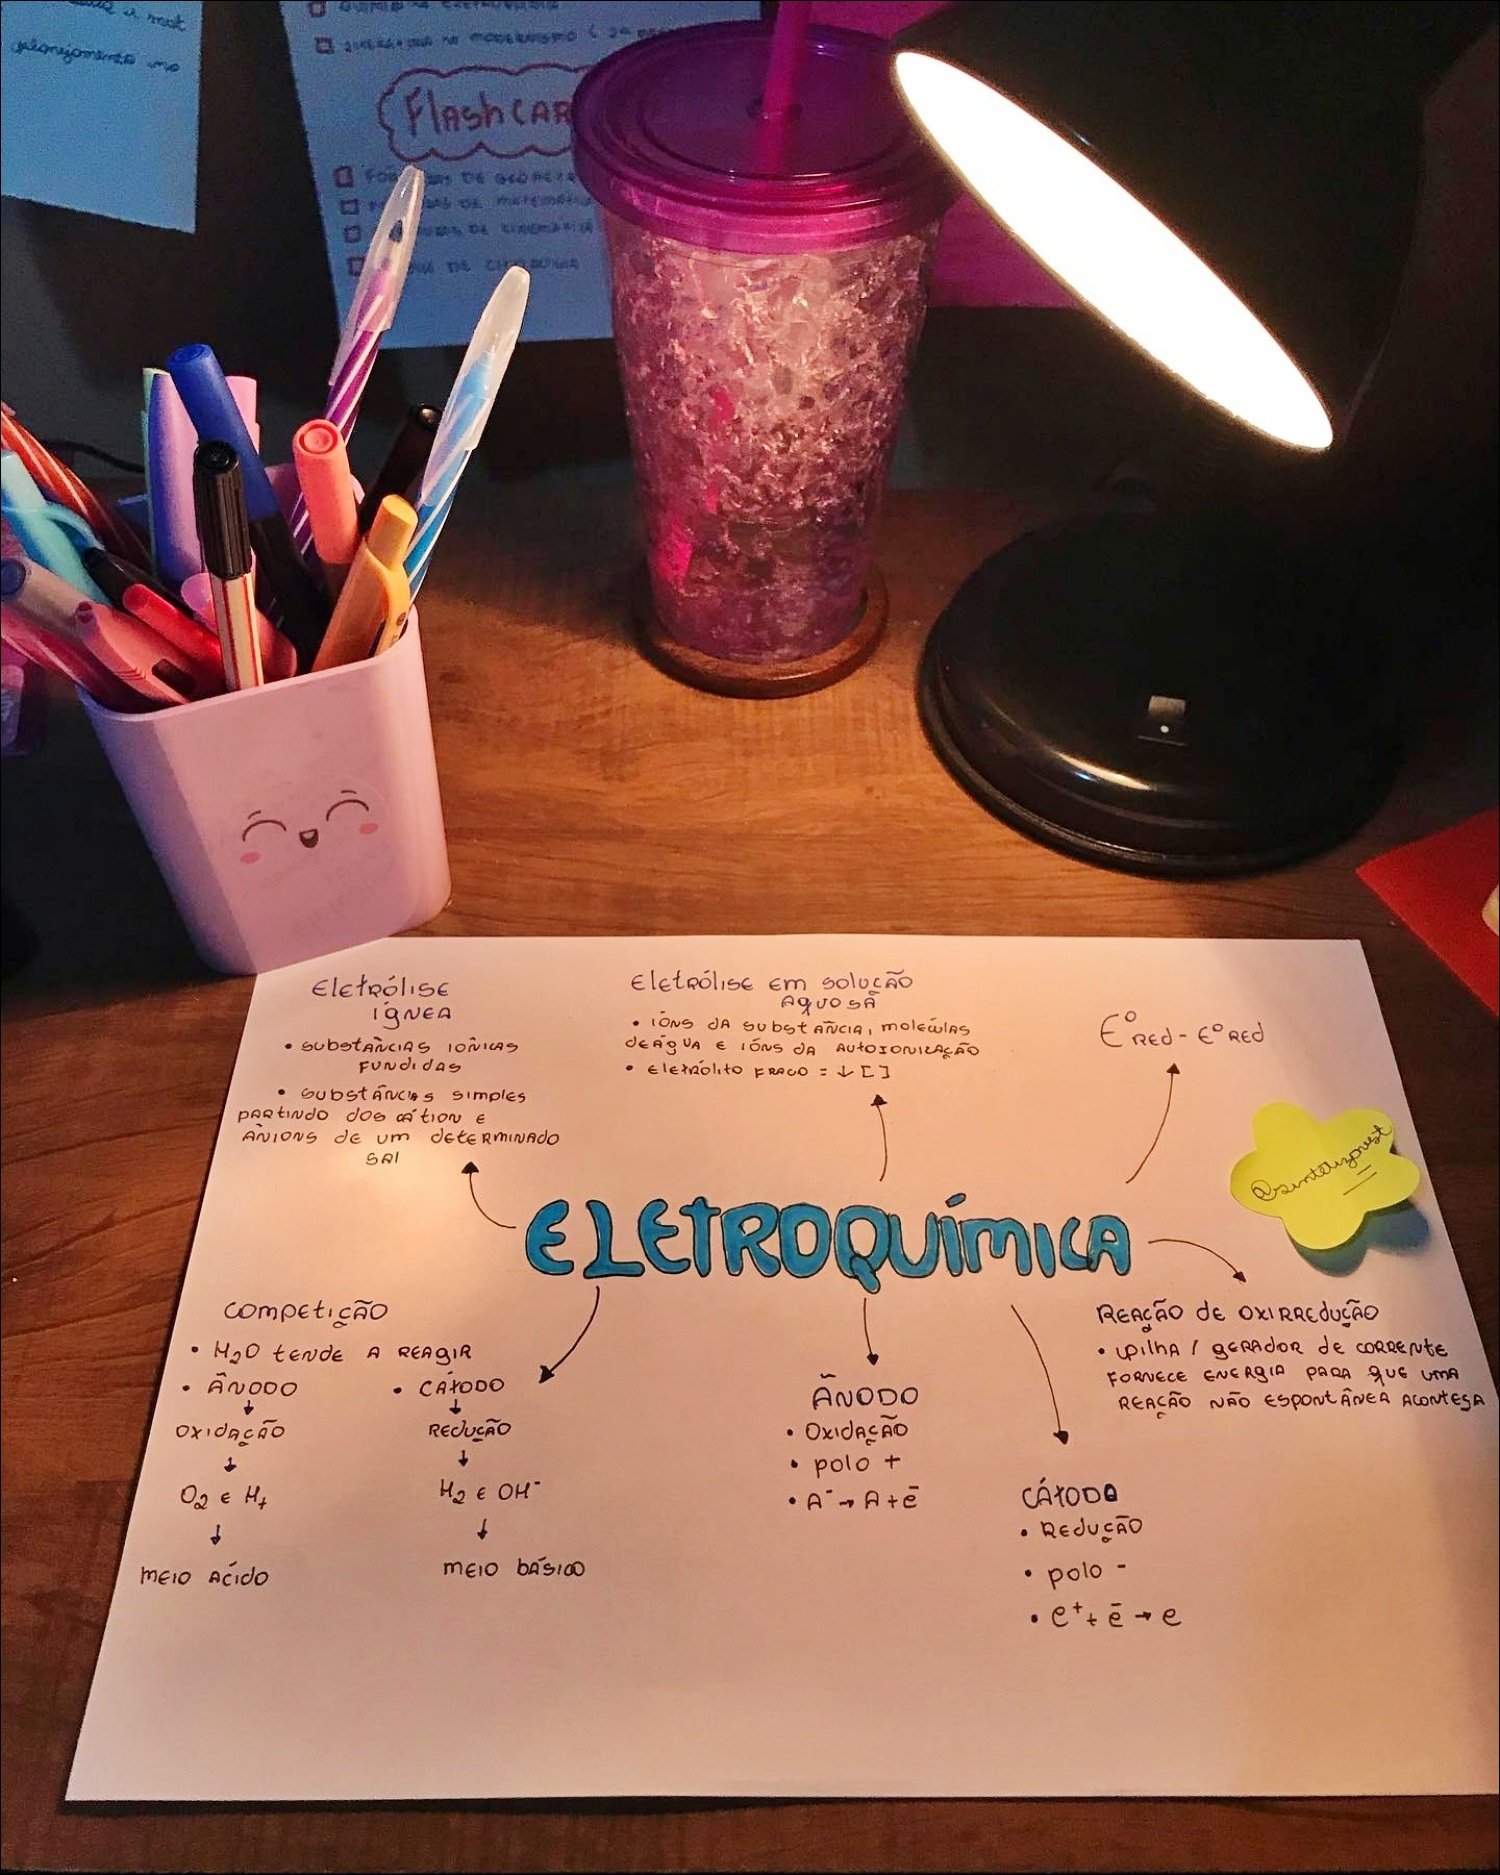 planejamento no
Flash CAR
DE GEOMETR
DE MATEMÁTIC
DE CINEMÁTICA
DE CITOLOGIA
Eletrólise
ígnea
• substâncias iônicas
fundidas
• substâncias simples
partindo dos cátion e
ânions de um determinado
sal
Eletrólise em solução
aquosa
• íons da substância, moléculas
de água e íons da autoionização
• eletrólito fraco = ↓ [ ]
E° RED - E° RED
@sintetizprest
ELETROQUÍMICA
Competição
• H2O tende a reagir
• Ânodo
↓
oxidação
↓
O2 e H+
↓
meio ácido
• Cátodo
↓
redução
↓
H2 e OH-
↓
meio básico
Ânodo
• Oxidação
• polo +
• A- → A + ē
Cátodo
• Redução
• polo -
• C+ + ē → C
Reação de oxirredução
• pilha / gerador de corrente
fornece energia para que uma
reação não espontânea aconteça